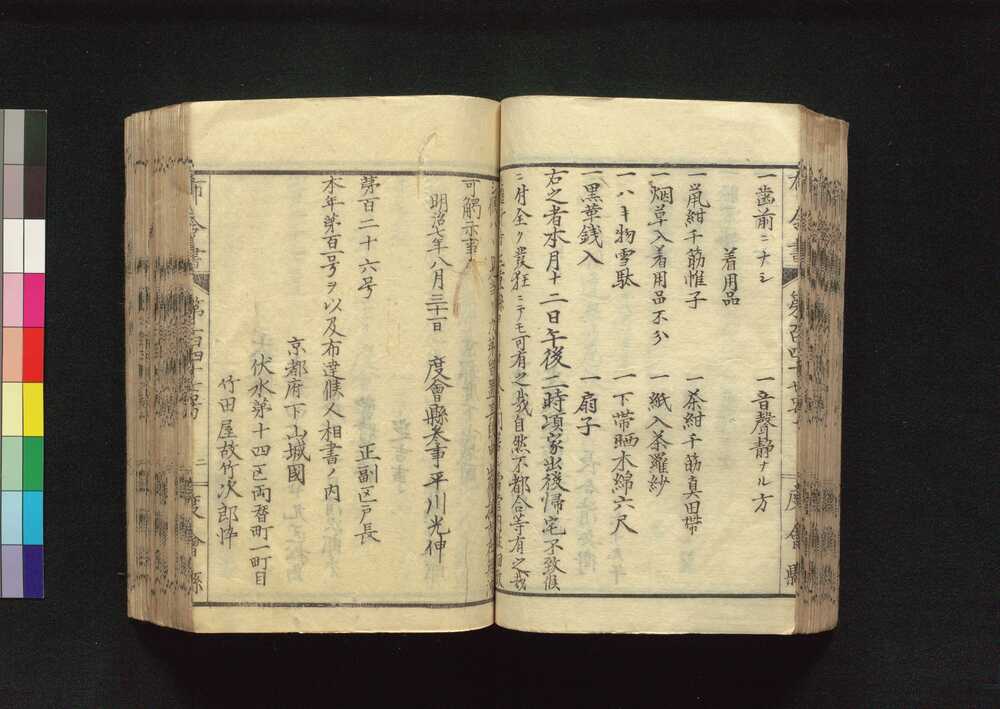 一歯前ニナシ
一音聲静ナル方
着用品
一鼠紺千筋帷子
一茶紺千筋真田帯
一烟草入着用品不分
一紙入茶羅紗
一ハキ物雪駄
一下帯晒木綿六尺
一黒革銭入
一扇子
右之者本月十二日午後二時頃家出後帰宅不致候
ニ付全ク發狂ニテモ可有之哉自然不都合等有之哉
可觸示事
明治七年八月三十一日
度會縣参事平川光伸
正副区戸長
第百二十六号
本年第百号ヲ以及布達候人相書ノ内
京都府下山城國
伏水第十四区両替町一町目
竹田屋故竹次郎忰
布令書
第百四十七号
二
度會縣
布令書
第百四十七号
度會縣